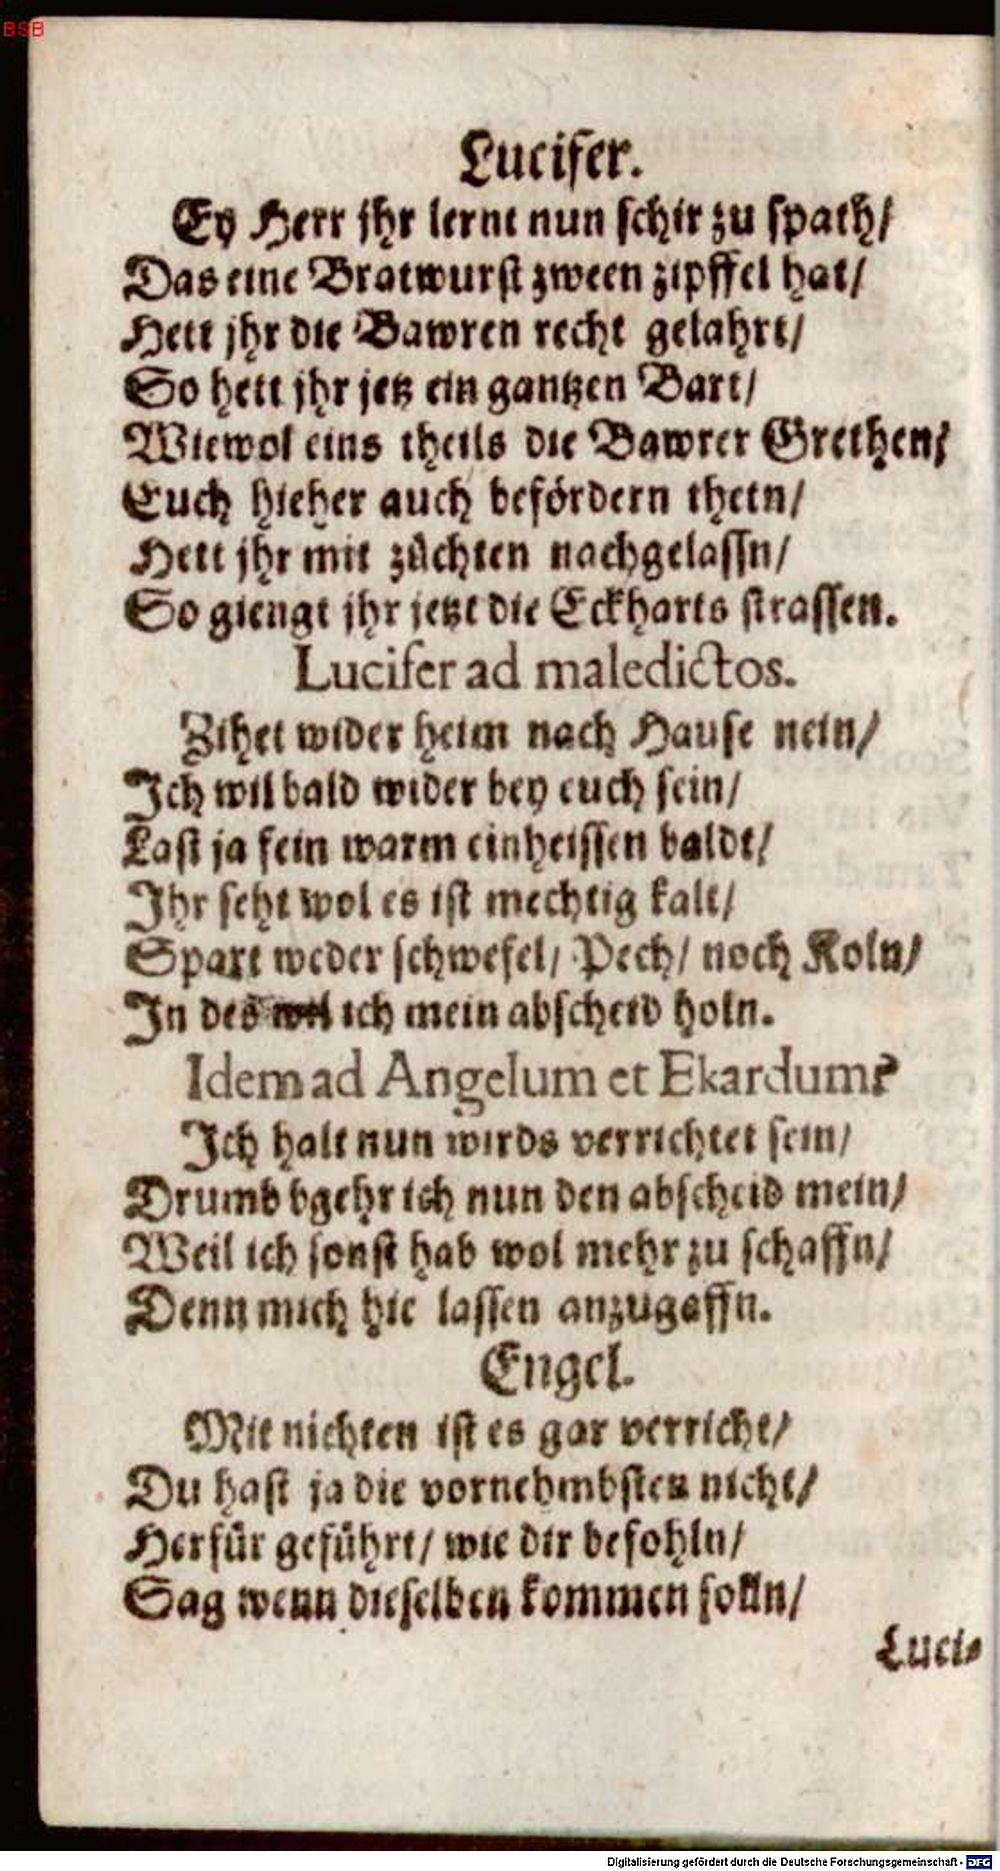 BSB
Lucifer.
Ey Herr jhr lernt nun schir zu spath/
Das eine Bratwurst zween zipffel hat/
Hett jhr die Bawren recht gelahrt/
So hett jhr jetz ein gantzen Bart/
Wiewol eins theils die Bawrer Grethen/
Euch hieher auch befördern thetn/
Hett jhr mit züchten nachgelassn/
So giengt jhr jetzt die Eckharts strassen.
Lucifer ad maledictos.
Zihet wider heim nach Hause nein/
Ich wil bald wider bey euch sein/
Last ja fein warm einheissen baldt/
Ihr seht wol es ist mechtig kalt/
Spart weder schwefel/ Pech/ noch Koln/
In des wil ich mein abscheid holn.
Idem ad Angelum et Ekardum.
Ich halt nun wirds verrichtet sein/
Drumb bgehr ich nun den abscheid mein/
Weil ich sonst hab wol mehr zu schaffn/
Denn mich hie lassen anzugaffn.
Engel.
Mit nichten ist es gar verricht/
Du hast ja die vornehmbsten nicht/
Herfür geführt/ wie dir befohln/
Sag wenn dieselben kommen solln/
Luci-
Digitalisierung gefördert durch die Deutsche Forschungsgemeinschaft - DFG